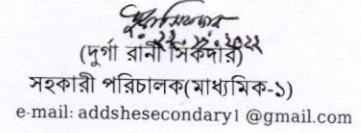 ২২.১১.২০২২
(দুর্গা রানী সিকদার)
সহকারী পরিচালক(মাধ্যমিক-১)
e-mail: addshesecondary1@gmail.com